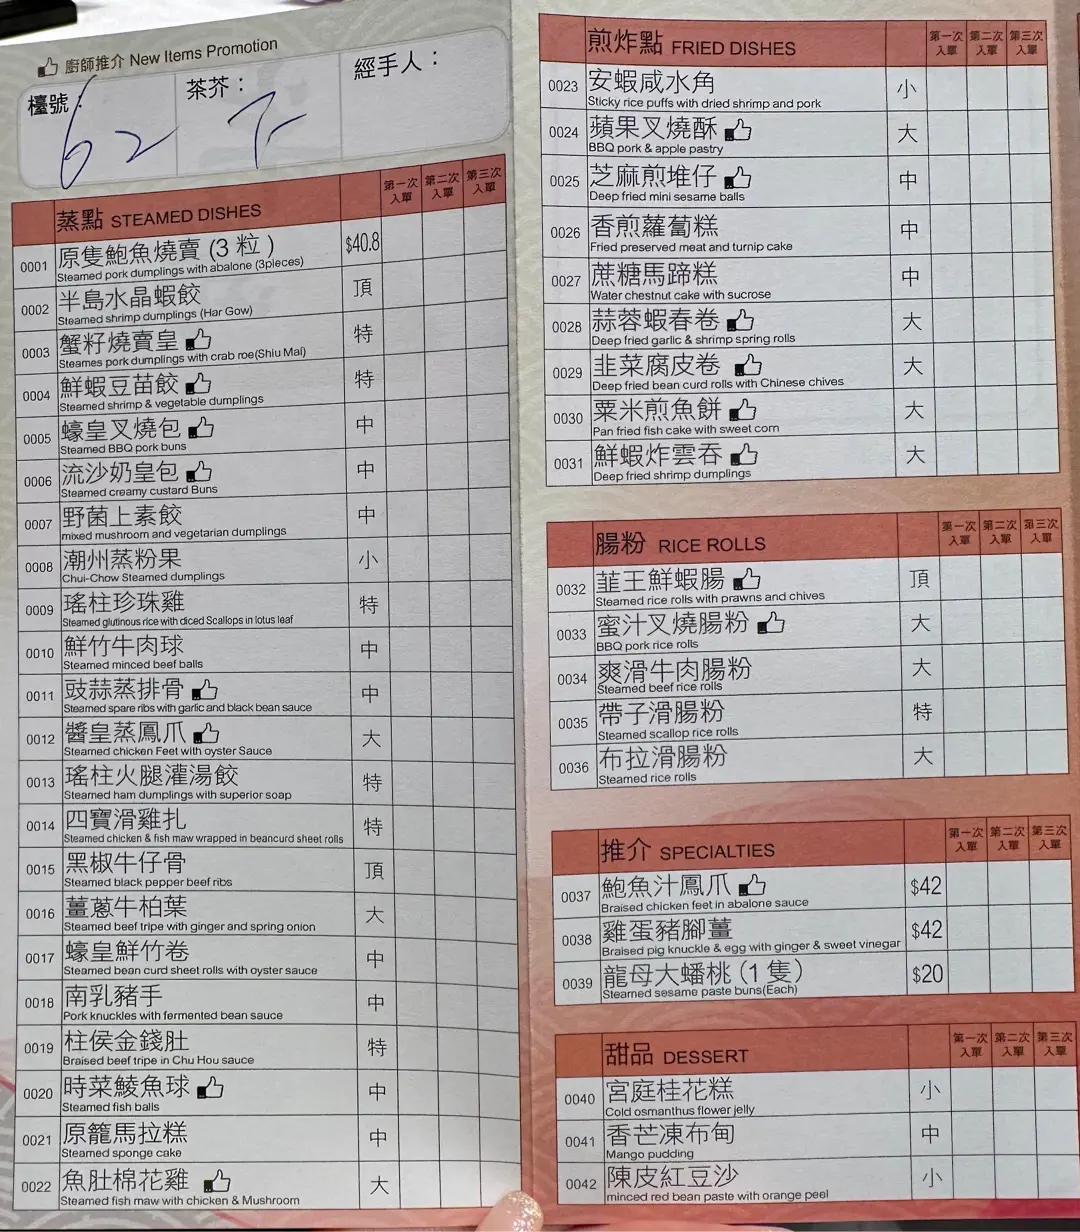 廚師推介 New Items Promotion
檯號： 62
茶芥：
經手人：
蒸點 STEAMED DISHES 第一次入單 第二次入單 第三次入單
0001 原隻鮑魚燒賣 (3 粒) $40.8
Steamed pork dumplings with abalone (3pieces)
0002 半島水晶蝦餃 頂
Steamed shrimp dumplings (Har Gow)
0003 蟹籽燒賣皇 特
Steames pork dumplings with crab roe(Shiu Mai)
0004 鮮蝦豆苗餃 特
Steamed shrimp & vegetable dumplings
0005 蠔皇叉燒包 中
Steamed BBQ pork buns
0006 流沙奶皇包 中
Steamed creamy custard Buns
0007 野菌上素餃 中
mixed mushroom and vegetarian dumplings
0008 潮州蒸粉果 小
Chui-Chow Steamed dumplings
0009 瑤柱珍珠雞 特
Steamed glutinous rice with diced Scallops in lotus leaf
0010 鮮竹牛肉球 中
Steamed minced beef balls
0011 豉蒜蒸排骨 中
Steamed spare ribs with garlic and black bean sauce
0012 醬皇蒸鳳爪 大
Steamed chicken Feet with oyster Sauce
0013 瑤柱火腿灌湯餃 特
Steamed ham dumplings with superior soap
0014 四寶滑雞扎 特
Steamed chicken & fish maw wrapped in beancurd sheet rolls
0015 黑椒牛仔骨 頂
Steamed black pepper beef ribs
0016 薑蔥牛柏葉 大
Steamed beef tripe with ginger and spring onion
0017 蠔皇鮮竹卷 中
Steamed bean curd sheet rolls with oyster sauce
0018 南乳豬手 中
Pork knuckles with fermented bean sauce
0019 柱侯金錢肚 特
Braised beef tripe in Chu Hou sauce
0020 時菜鯪魚球 中
Steamed fish balls
0021 原籠馬拉糕 中
Steamed sponge cake
0022 魚肚棉花雞 大
Steamed fish maw with chicken & Mushroom
煎炸點 FRIED DISHES 第一次入單 第二次入單 第三次入單
0023 安蝦咸水角 小
Sticky rice puffs with dried shrimp and pork
0024 蘋果叉燒酥 大
BBQ pork & apple pastry
0025 芝麻煎堆仔 中
Deep fried mini sesame balls
0026 香煎蘿蔔糕 中
Fried preserved meat and turnip cake
0027 蔗糖馬蹄糕 中
Water chestnut cake with sucrose
0028 蒜蓉蝦春卷 大
Deep fried garlic & shrimp spring rolls
0029 韭菜腐皮卷 大
Deep fried bean curd rolls with Chinese chives
0030 粟米煎魚餅 大
Pan fried fish cake with sweet corn
0031 鮮蝦炸雲吞 大
Deep fried shrimp dumplings
腸粉 RICE ROLLS 第一次入單 第二次入單 第三次入單
0032 韮王鮮蝦腸 頂
Steamed rice rolls with prawns and chives
0033 蜜汁叉燒腸粉 大
BBQ pork rice rolls
0034 爽滑牛肉腸粉 大
Steamed beef rice rolls
0035 帶子滑腸粉 特
Steamed scallop rice rolls
0036 布拉滑腸粉 大
Steamed rice rolls
推介 SPECIALTIES 第一次入單 第二次入單 第三次入單
0037 鮑魚汁鳳爪 $42
Braised chicken feet in abalone sauce
0038 雞蛋豬腳薑 $42
Braised pig knuckle & egg with ginger & sweet vinegar
0039 龍母大蟠桃 (1 隻) $20
Steamed sesame paste buns(Each)
甜品 DESSERT 第一次入單 第二次入單 第三次入單
0040 宮庭桂花糕 小
Cold osmanthus flower jelly
0041 香芒凍布甸 中
Mango pudding
0042 陳皮紅豆沙 小
minced red bean paste with orange peel